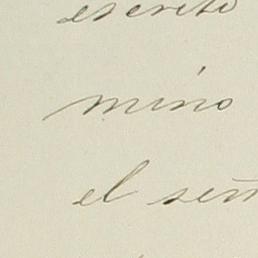 escrito
mino
el señ